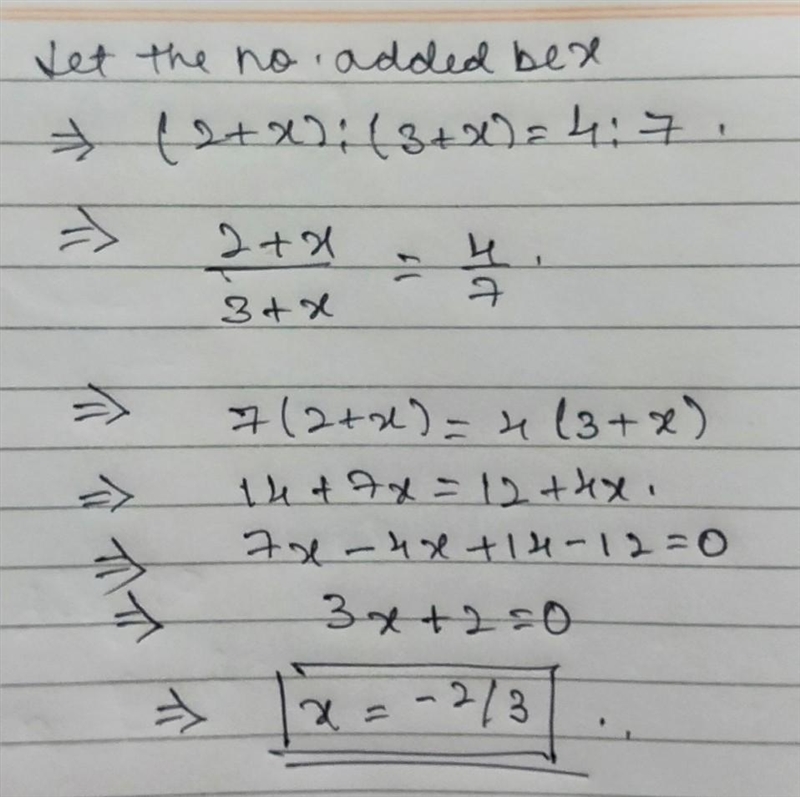 Let the no. added be x
⇒ (2+x):(3+x)=4:7.
⇒ 2+x/3+x = 4/7.
⇒ 7(2+x)=4(3+x)
⇒ 14+7x=12+4x.
⇒ 7x-4x+14-12=0
⇒ 3x+2=0
⇒ x = -2/3 ..